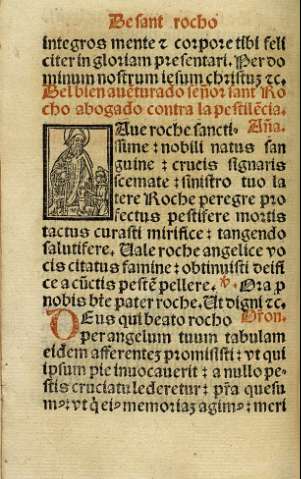 De sant rocho
integros mente ⁊ corpore tibi feli
citer in gloriam presentari. Per do
minum nostrum iesum christuz ⁊c.
Del bien auēturado señor sant Ro
cho abogado contra la pestilēcia.
Aue roche sancti- Aña.
sime : nobili natus san
guine : crucis signaris
scemate : sinistro tuo la
tere Roche peregre pro
fectus pestifere mortis
tactus curasti mirifice : tangendo
salutifere. Uale roche angelice vo
cis citatus famine : obtinuisti deifi
ce a cūctis pestē pellere. ℣. Ora p
nobis bte pater roche. Ut digni ⁊c.
Deus qui beato rocho Oron.
per angelum tuum tabulam
eidem afferentez promisisti : vt qui
ipsum pie inuocauerit : a nullo pe-
stis cruciatu lederetur : pr̄a quesu
mꝰ : vt q̄ eiꝰ memoriaz agimꝰ : meri